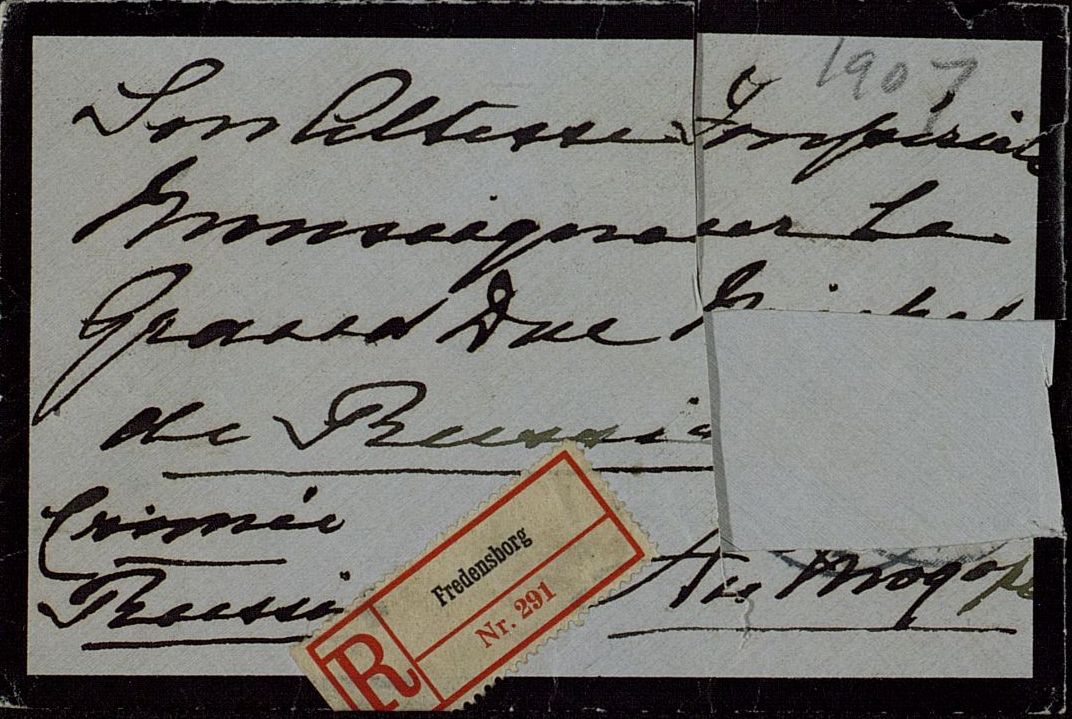 1907
Son Altesse Impériale
Monseigneur Le
Grand Duc Michel
de Russie
Crimée
Russie
Fredensborg
Nr. 291
R